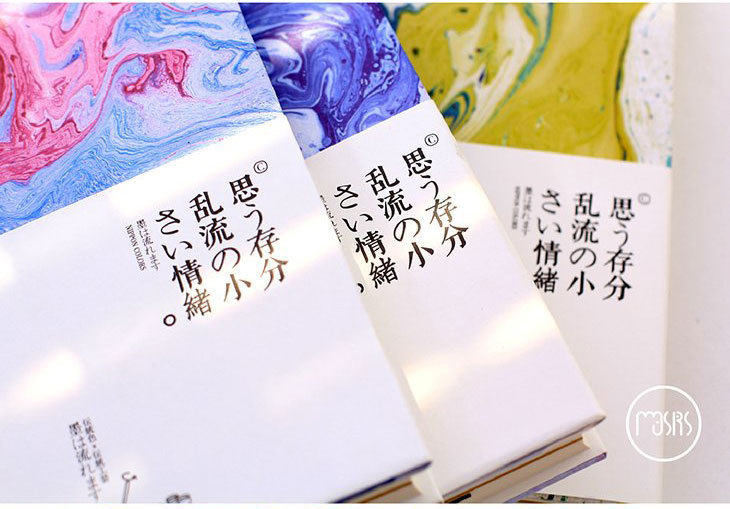 ©
思う存分
乱流の小
さい情緒。
墨は流れます
NIPPON COLORS
墨は流れます
©
思う存分
乱流の小
さい情緒。
墨は流れます
NIPPON COLORS
©
思う存分
乱流の小
さい情緒
墨は流れます
NIPPON COLORS